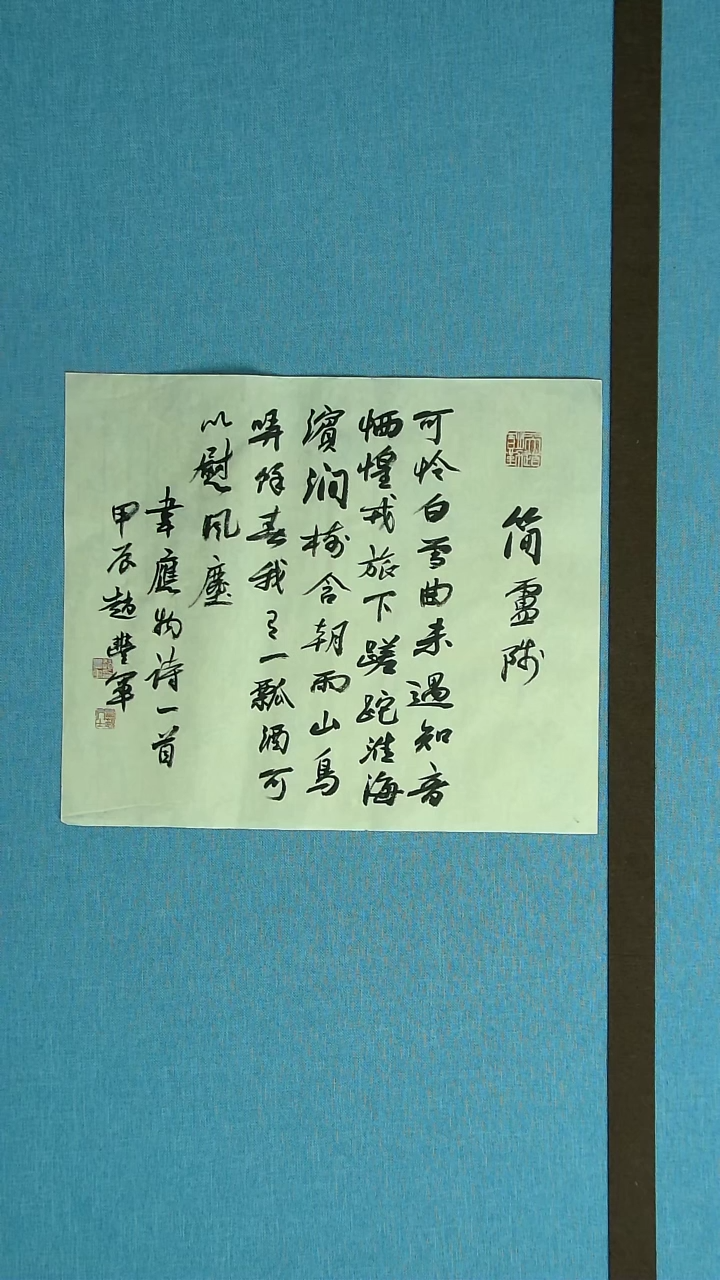 简盧陟
可怜白雪曲未遇知音
恓惶戎旅下蹉跎淮海
濱涧树含朝雨山鸟
哢馀春我有一瓢酒可
以慰风塵
韋應物诗一首
甲辰趙豐軍